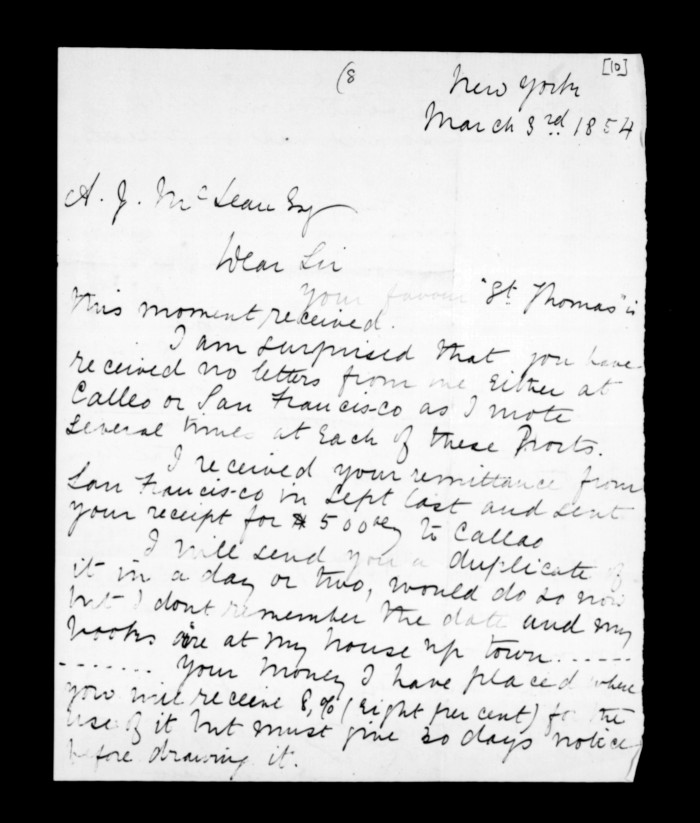 (8
[10]
New York
March 3rd 1854
A. J. McLean Esq
Dear Sir
Your favour "St Thomas" is
this moment received.
I am surprised that you have
received no letters from me Either at
Calleo or San Francisco as I wrote
several times at Each of these Ports.
I received your remittance from
San Francisco in Sept last and sent
your receipt for $500 to Callao
I will send you a duplicate of
it in a day or two, would do so now
but I dont remember the date and my
books are at my house up town......
....... Your Money I have placed where
you will receive 8,% (Eight per cent) for the
use of it but must give 30 days notice
before drawing it.